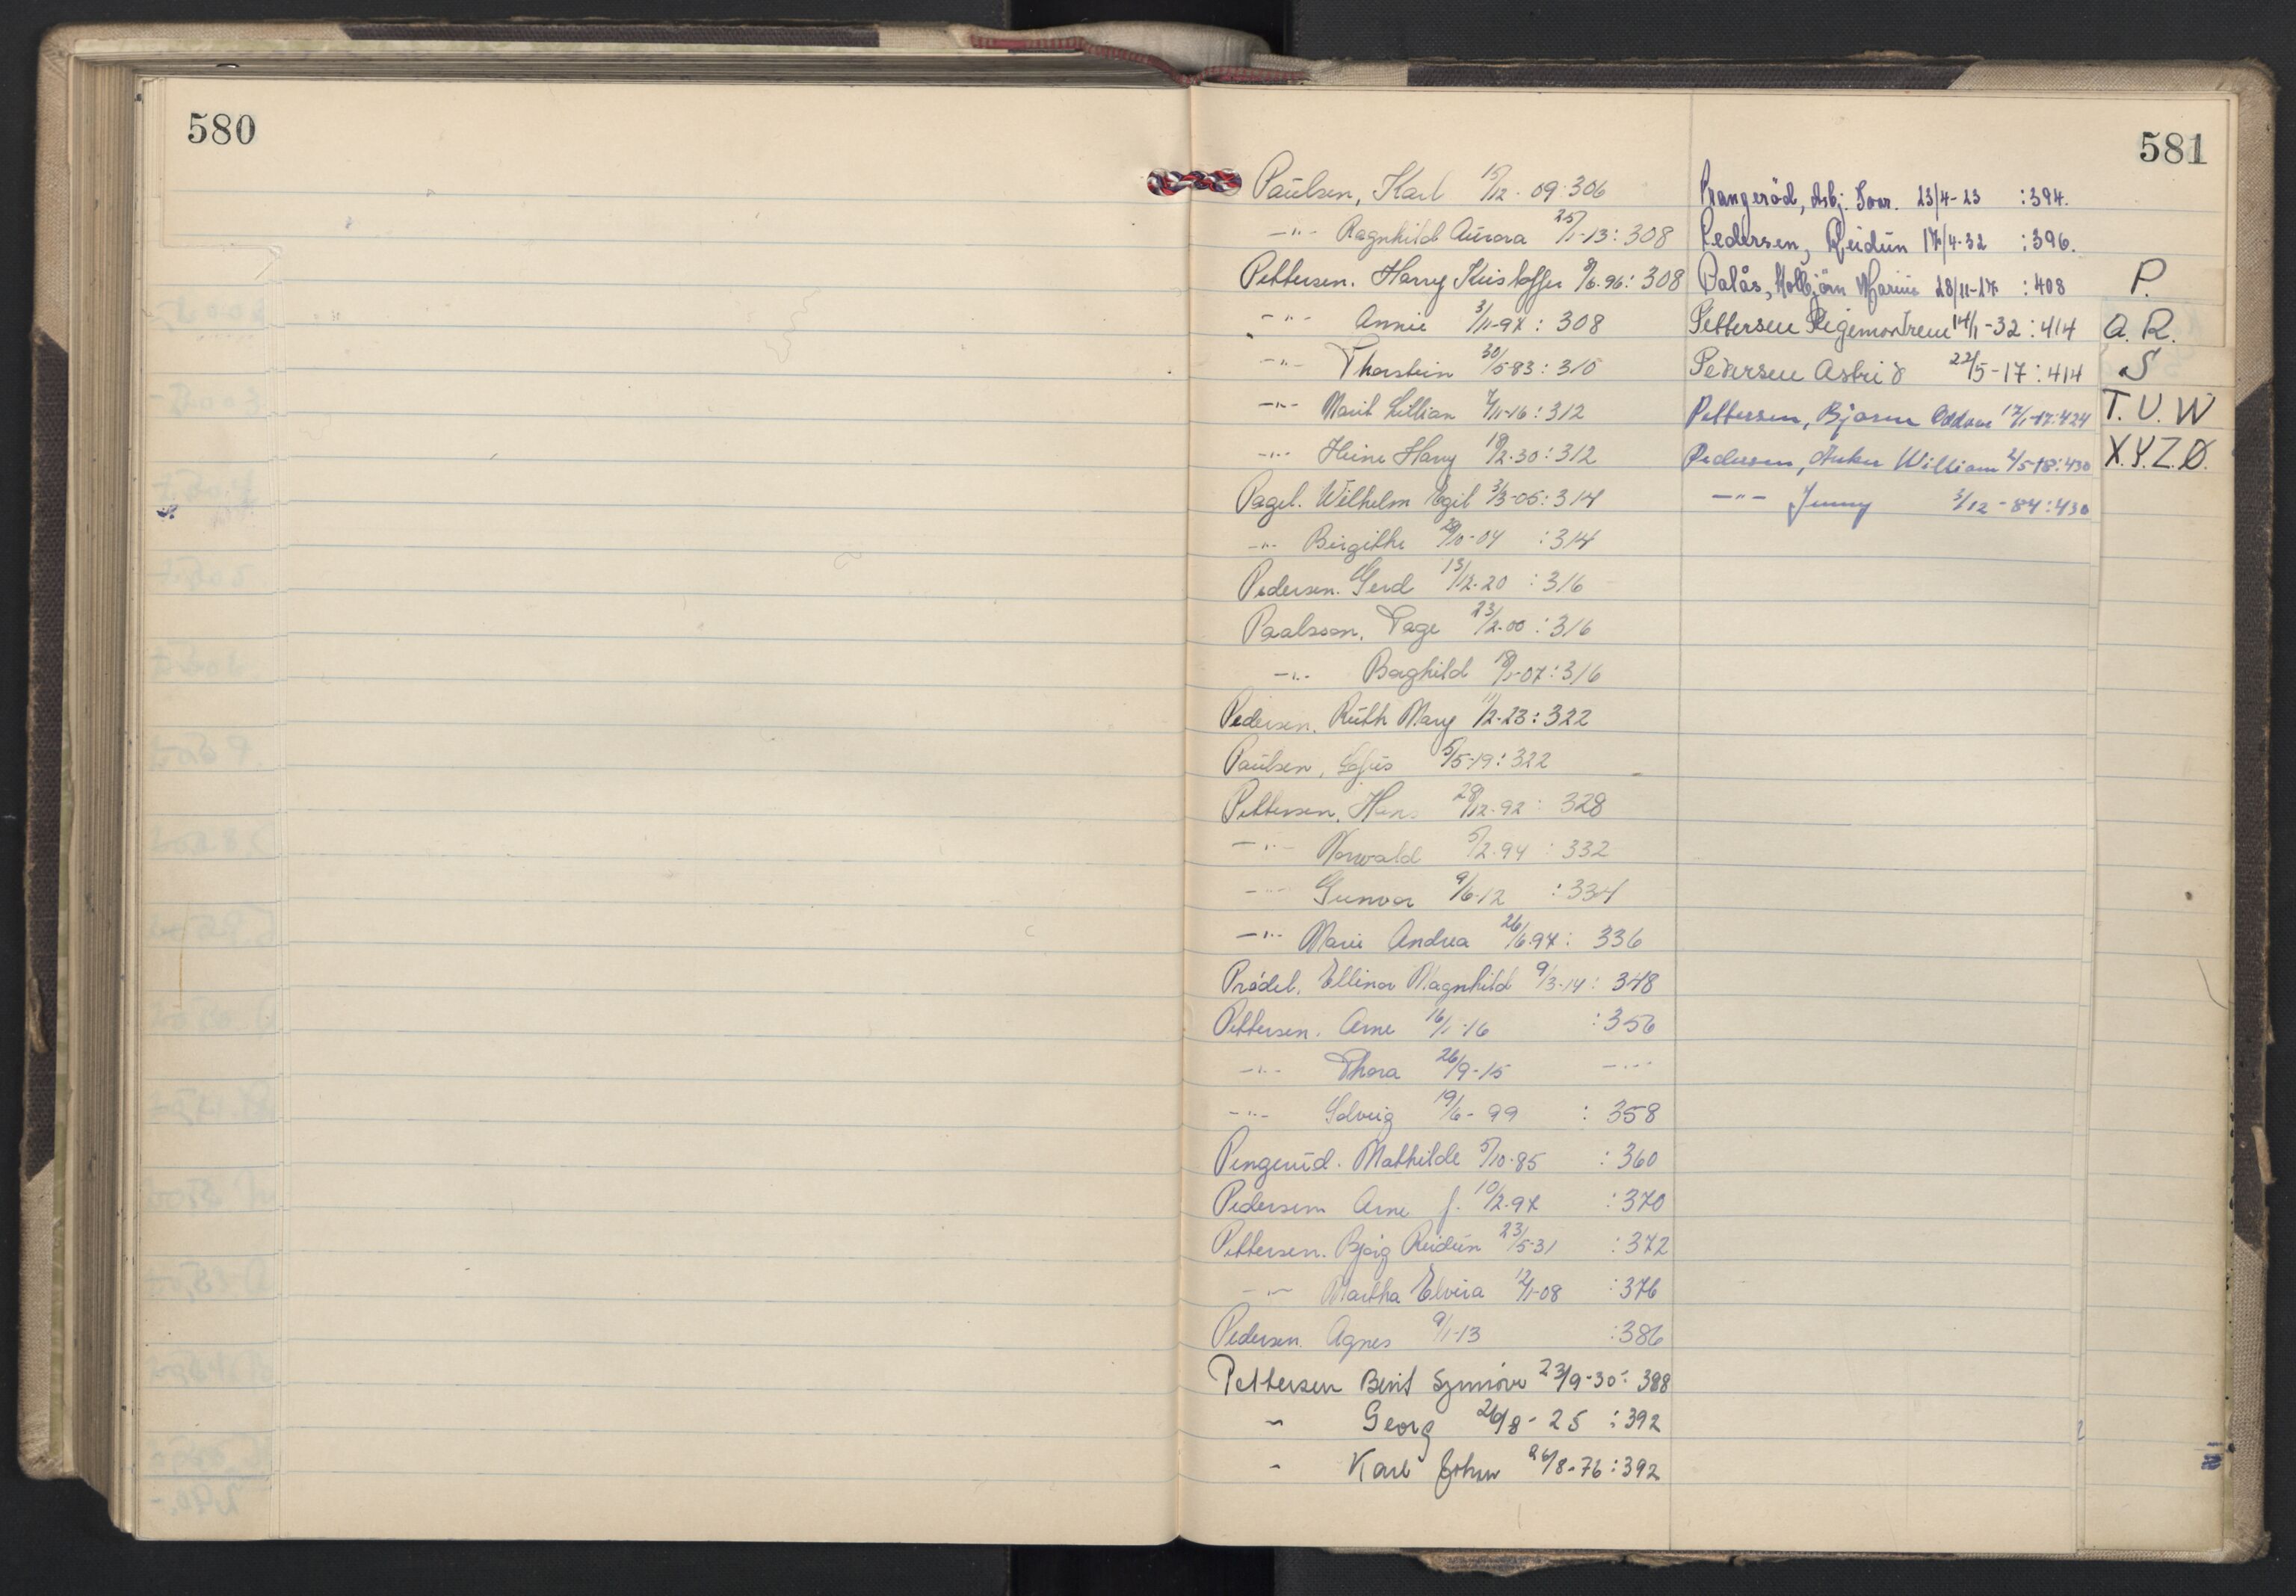 580
581
Paulsen, Karl 15/12-09:306
-"- Ragnhild Aurora 25/1-13:308
Pettersen. Harry Kristoffer 8/6.96:308
-"- Annie 3/11-97:308
-"- Thorstein 30/5-83:310
-"- Marit Lillian 4/11-16:312
-"- Heine Harry 18/2-30:312
Pagel. Wilhelm Egil 3/3-05:314
-"- Birgithe 20/10-04 :314
Pedersen. Gerd 13/12-20 :316
Paalsson. Tage 23/2-00:316
-"- Borghild 18/1-07:316
Pedersen. Ruth Mary 11/2-23:322
Paulsen, 5/5-19:322
Pettersen, Hans 28/12-92: 328
-"- Norwald 5/2-94: 332
-"- Gunvor 9/6-12 :334
-"- Marie Andrea 26/6.97: 336
Prådel. Ellinor Magnhild 9/3-14: 348
Pettersen. Arne 16/1-16 :356
-"- Thora 26/9-15 -"-
-"- Solveig 19/6-99 : 358
Pengerud. Mathilde 5/10-85 :360
Pedersen Arne J. 10/2-97 :370
Pettersen. Bjørg Reidun 23/5-31 :372
-"- Martha Elvira 12/1-08 :376
Pedersen. Agnes 9/1-13 :386
Pettersen Berit Synnöve 23/9-30: 388
" Georg 26/8-25 :392
" Karl Johan 26/8-76:392
Prangeröd, Asbj. Ivar. 23/4-23 :394.
Pedersen, Reidun 17/4-32 :396.
Palås, 28/11-27 :408
Pettersen Regemor Irene 14/1-32:414
Pedersen Astrid 22/5-17:414
Pettersen, Bjarne Oddvar 17/1-17:424
Pedersen, Anker William 2/5-18:430
-"- Jenny 3/12-84:430
P.
Q. R.
S
T. U. W
X.Y.Z.Ø.